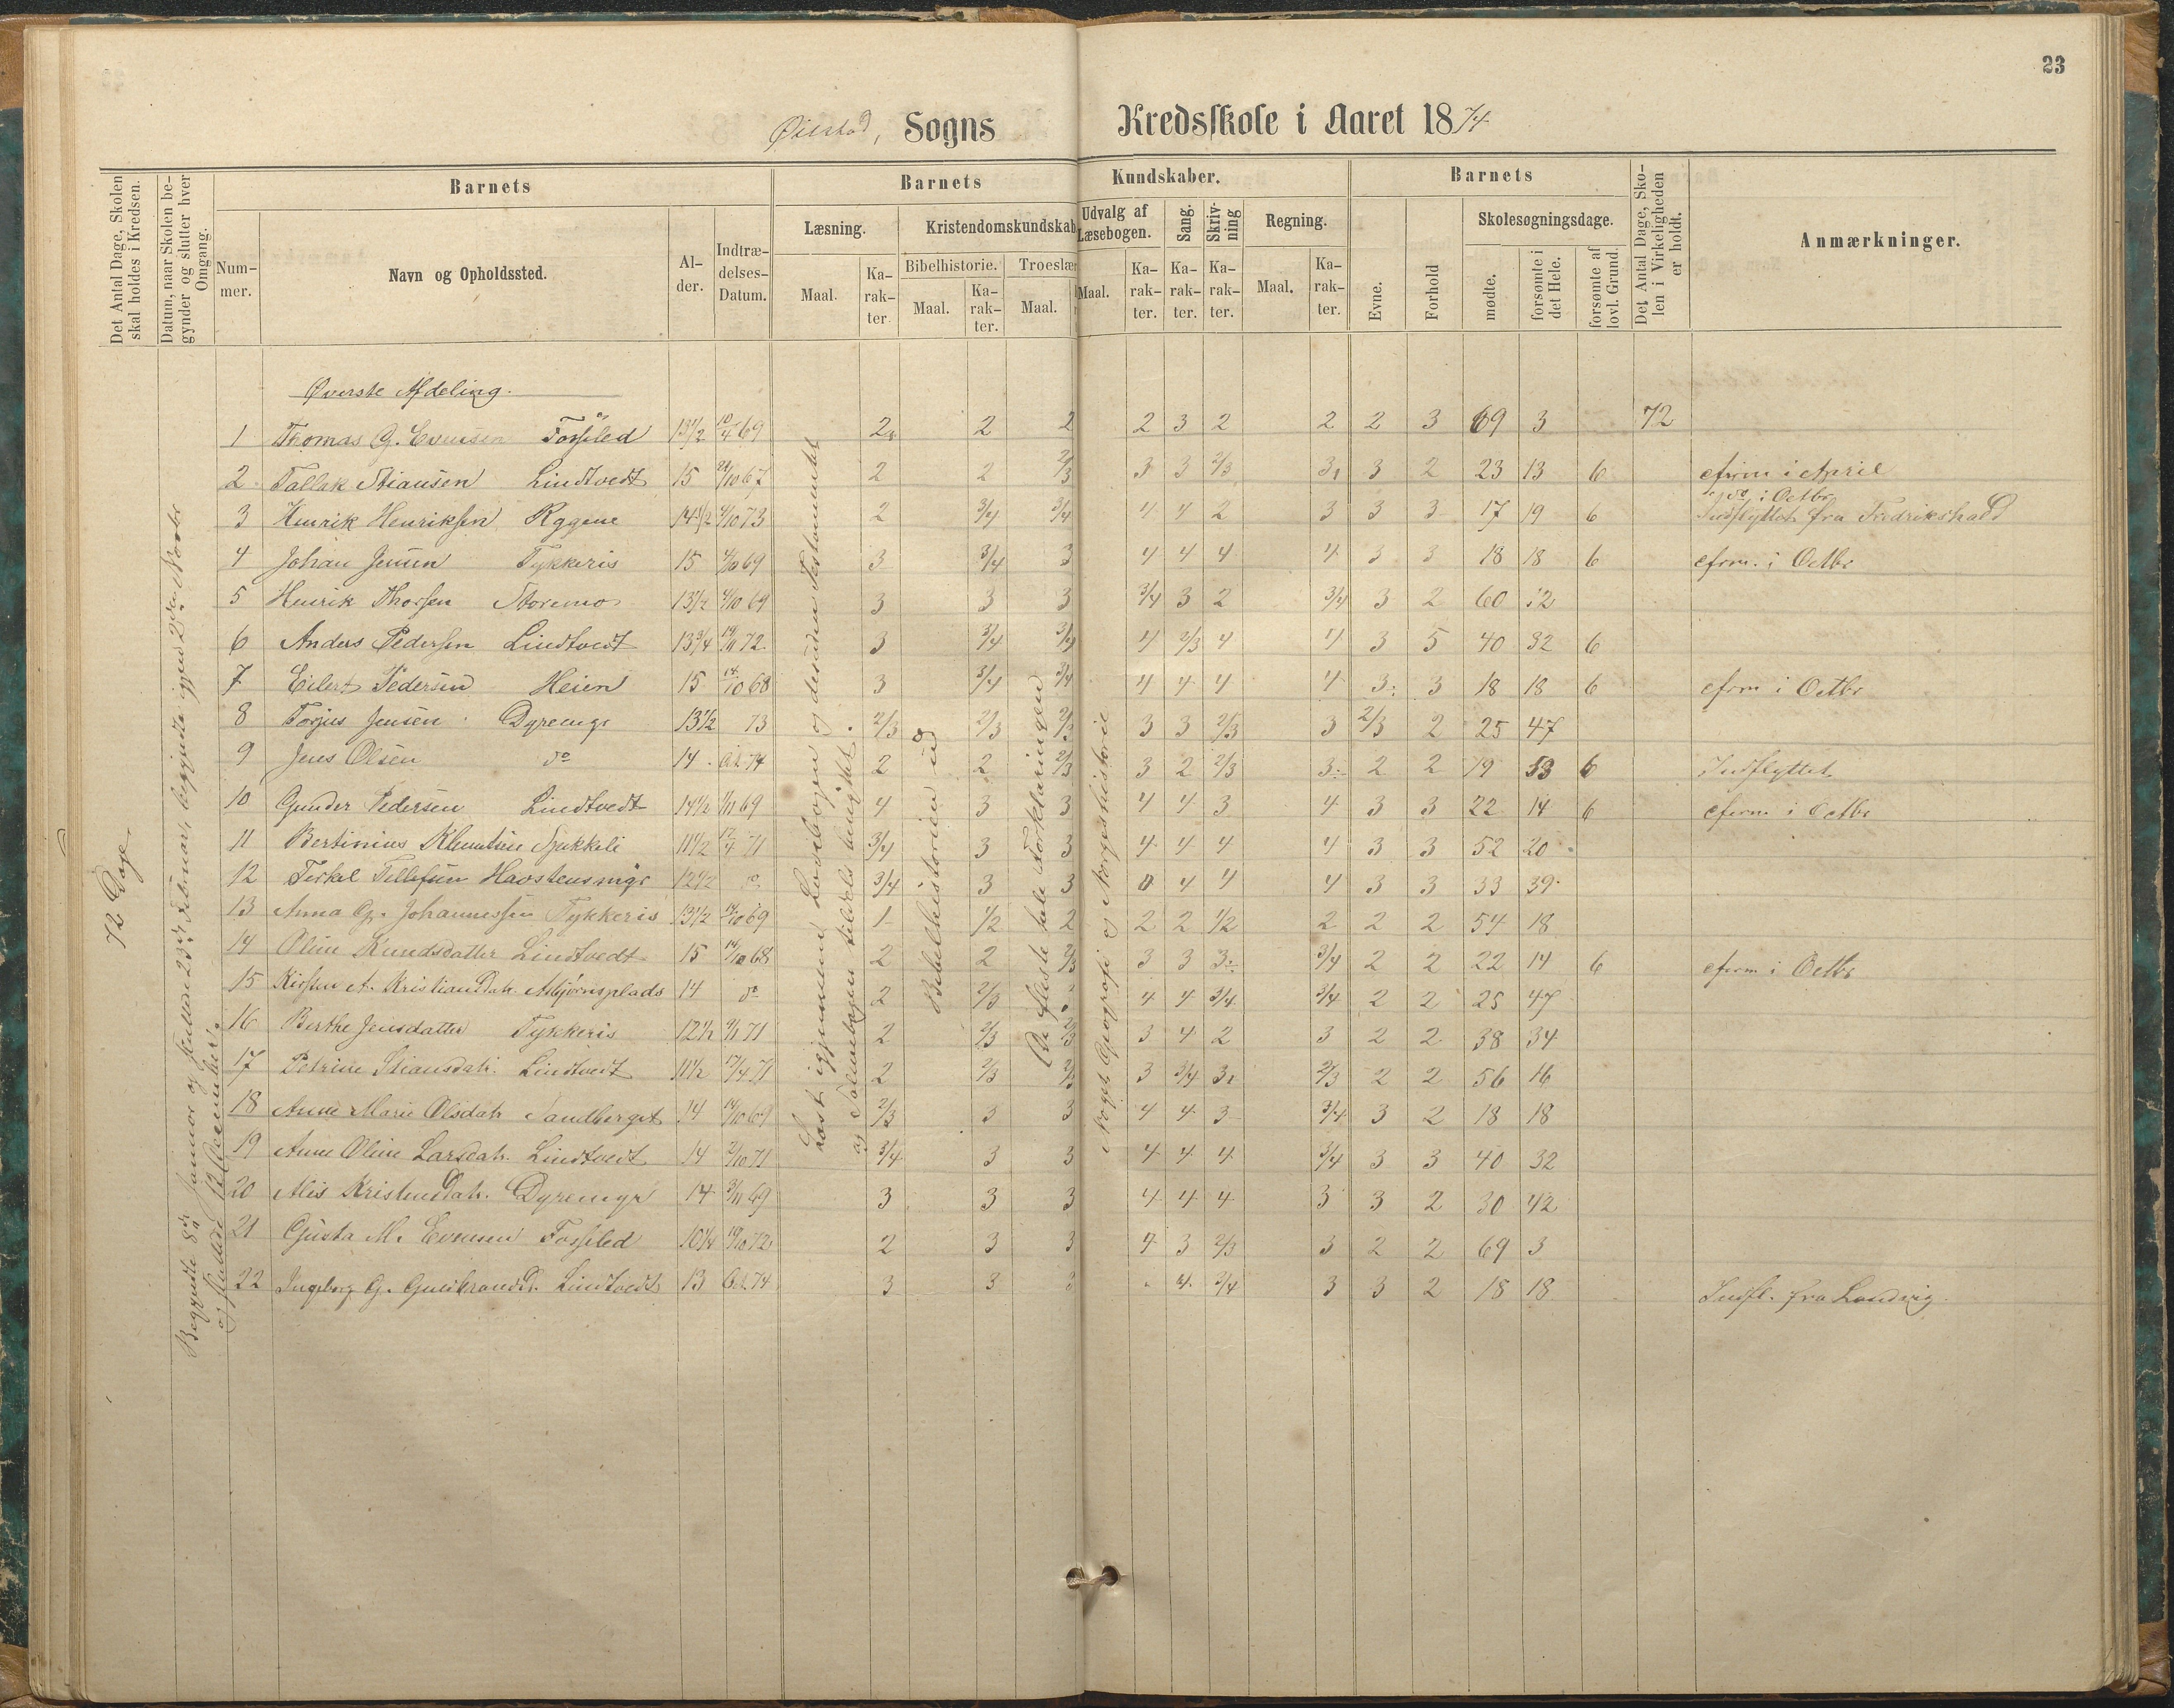 23
Øiestad, Sogns Kredsskole i Aaret 1874
Det Antal Dage, Skolen skal holdes i Kredsen.
Datum, naar Skolen begynder og slutter hver Omgang.
Barnets
Nummer.
Navn og Opholdssted.
Alder.
Indtrædelses-Datum.
Barnets Kundskaber.
Læsning.
Maal.
Karakter.
Kristendomskundskab
Bibelhistorie.
Maal.
Karakter.
Troeslær
Maal.
Udvalg af Læsebogen.
Maal.
Karakter.
Sang.
Karakter.
Skrivning
Karakter.
Regning.
Maal.
Karakter.
Barnets
Evne.
Forhold
Skolesøgningsdage.
mødte.
forsømte i det Hele.
forsømte af lovl. Grund.
Det Antal Dage, Skolen i Virkeligheden er holdt.
Anmærkninger.
72 Dage
Begyndte 8de Januar og sluttede 23de Februar, begyndte igjen 2den Novbr
og sluttede 12 December.
Læst igjennem Lesebogen og desuden Testamentet
og Salmebogen tildels benyttet.
Bibelhistorien ud
De fleste hele Forklaringen
Noget Geografi og Norgeshistorie
Øverste Afdeling.
1 Thomas G. Evensen Fosseled 13 1/2 10/4 69 2 2 2 2 3 2 2 2 3 69 3 72
2 Tallak Stiansen Lindtvedt 15 67 2 2 2/3 3 3 2/3 3 3 2 23 13 6 cfirm i April
3 Henrik Henriksen Rygene 14 1/2 73 2 3/4 3/4 4 4 2 3 3 3 17 19 6 do i Octbr Indflyttet fra Fredrikshald
4 Johan Jensen Tykkeris 15 69 3 3/4 3 4 4 4 4 3 3 18 18 6 cfrm. i Octbr
5 Henrik Thorsen Storemo 13 1/2 69 3 3 3 3/4 3 2 3/4 3 2 60 12
6 Anders Pedersen Lindtvedt 13 3/4 14/11 72 3 3/4 3/4 4 2/3 4 4 3 5 40 32 6
7 Eilert Pedersen Heien 15 14/10 68 3 3/4 3/4 4 4 4 4 3 3 18 18 6 cfrm i Octbr
8 Torjus Jensen Dyremyr 13 1/2 73 2/3 2/3 2/3 3 3 2/3 3 2/3 2 25 47
9 Jens Olsen do 14 74 2 2 2/3 3 2 2/3 3 2 2 19 53 6 Indflyttet
10 Gunder Pedersen Lindtvedt 14 1/2 69 4 3 3 4 4 3 4 3 3 22 14 6 cfirm i Octbr
11 Bertinius Klemetsen 11 1/2 12/4 71 3/4 3 3 4 4 4 4 3 3 52 20
12 Terkel Tellefsen 12 1/2 do 3/4 3 3 4 4 4 3 3 33 39
13 Anna G. Johannessen Tykkeris 13 1/2 14/10 69 1 1/2 2 2 2 1/2 2 2 2 54 18
14 Oline Knudsdatter Lindtvedt 15 14/10 68 2 2 2/3 3 3 3 3/4 2 2 22 14 6 cfirm i Octbr
15 Kirsten A. Kristiansdatr Asbjørnsplads 14 do 2 2/3 4 4 3/4 3/4 2 2 25 47
16 Berthe Jensdatter Tykkeris 12 1/2 71 2 2/3 2/3 3 4 2 3 2 2 38 34
17 Petrine Stiansdatr. Lindtvedt 11 1/2 17/4 71 2 2/3 2/3 3 3/4 3 2/3 2 2 56 16
18 Anne Marie Olsdatr Sandberget 14 14/10 69 2/3 3 3 4 4 3 3/4 3 2 18 18
19 Anne Oline Larsdatr. Lindtvedt 14 71 3/4 3 3 4 4 4 3/4 3 3 40 32
20 Alis Kristensdatr. Dyremyr 14 69 3 3 3 4 4 4 3 3 2 30 42
21 Gusta M. Evensen Fosseled 10 1/4 72 2 3 3 4 3 2/3 3 2 2 69 3
22 Ingeborg G. Gundbrandsd. Lindtvedt 13 74 3 3 3 4 3/4 3 3 2 18 18 Indfl. fra Landvig